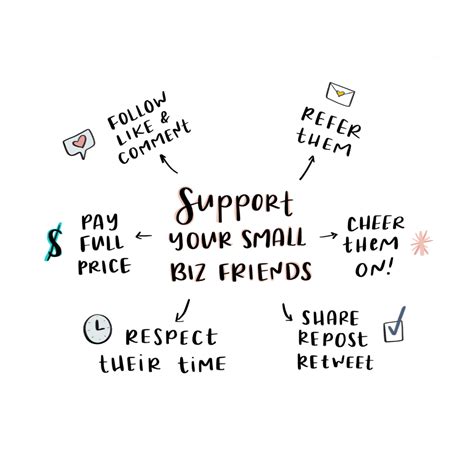 FOLLOW
LIKE &
COMMENT
REFER
THEM
Support
YOUR SMALL
BIZ FRIENDS
PAY
FULL
PRICE
$
CHEER
THEM
ON!
RESPECT
THEIR TIME
SHARE
REPOST
RETWEET